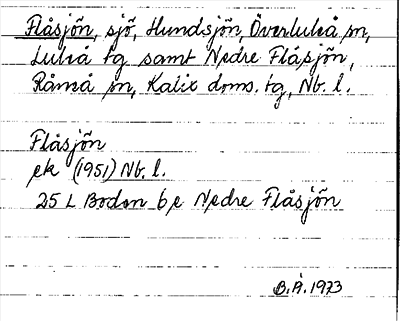 Flåsjön, sjö, Hundsjön, Överluleå sn,
Luleå tg samt Nedre Flåsjön,
Råneå sn, Kalix doms. tg, Nb. l.
Flåsjön
ek (1951) Nb. l.
25 L Boden 6e Nedre Flåsjön
B.Å. 1973